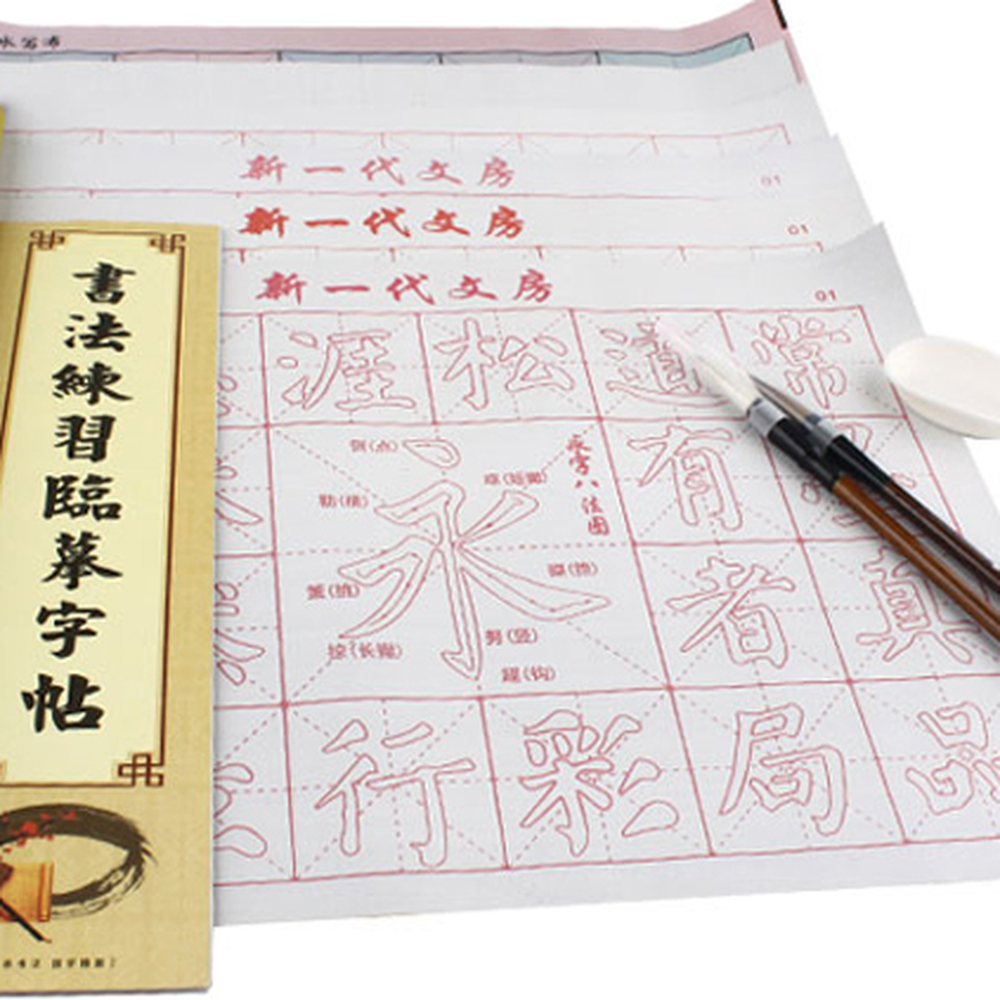 水写布
新一代文房
01
新一代文房
01
新一代文房
01
書法練習臨摹字帖
涯松道常
永字八法图
侧(点)
勒(横)
永
有
者真
努(竖)
掠(长撇)
趯(钩)
行彩局品